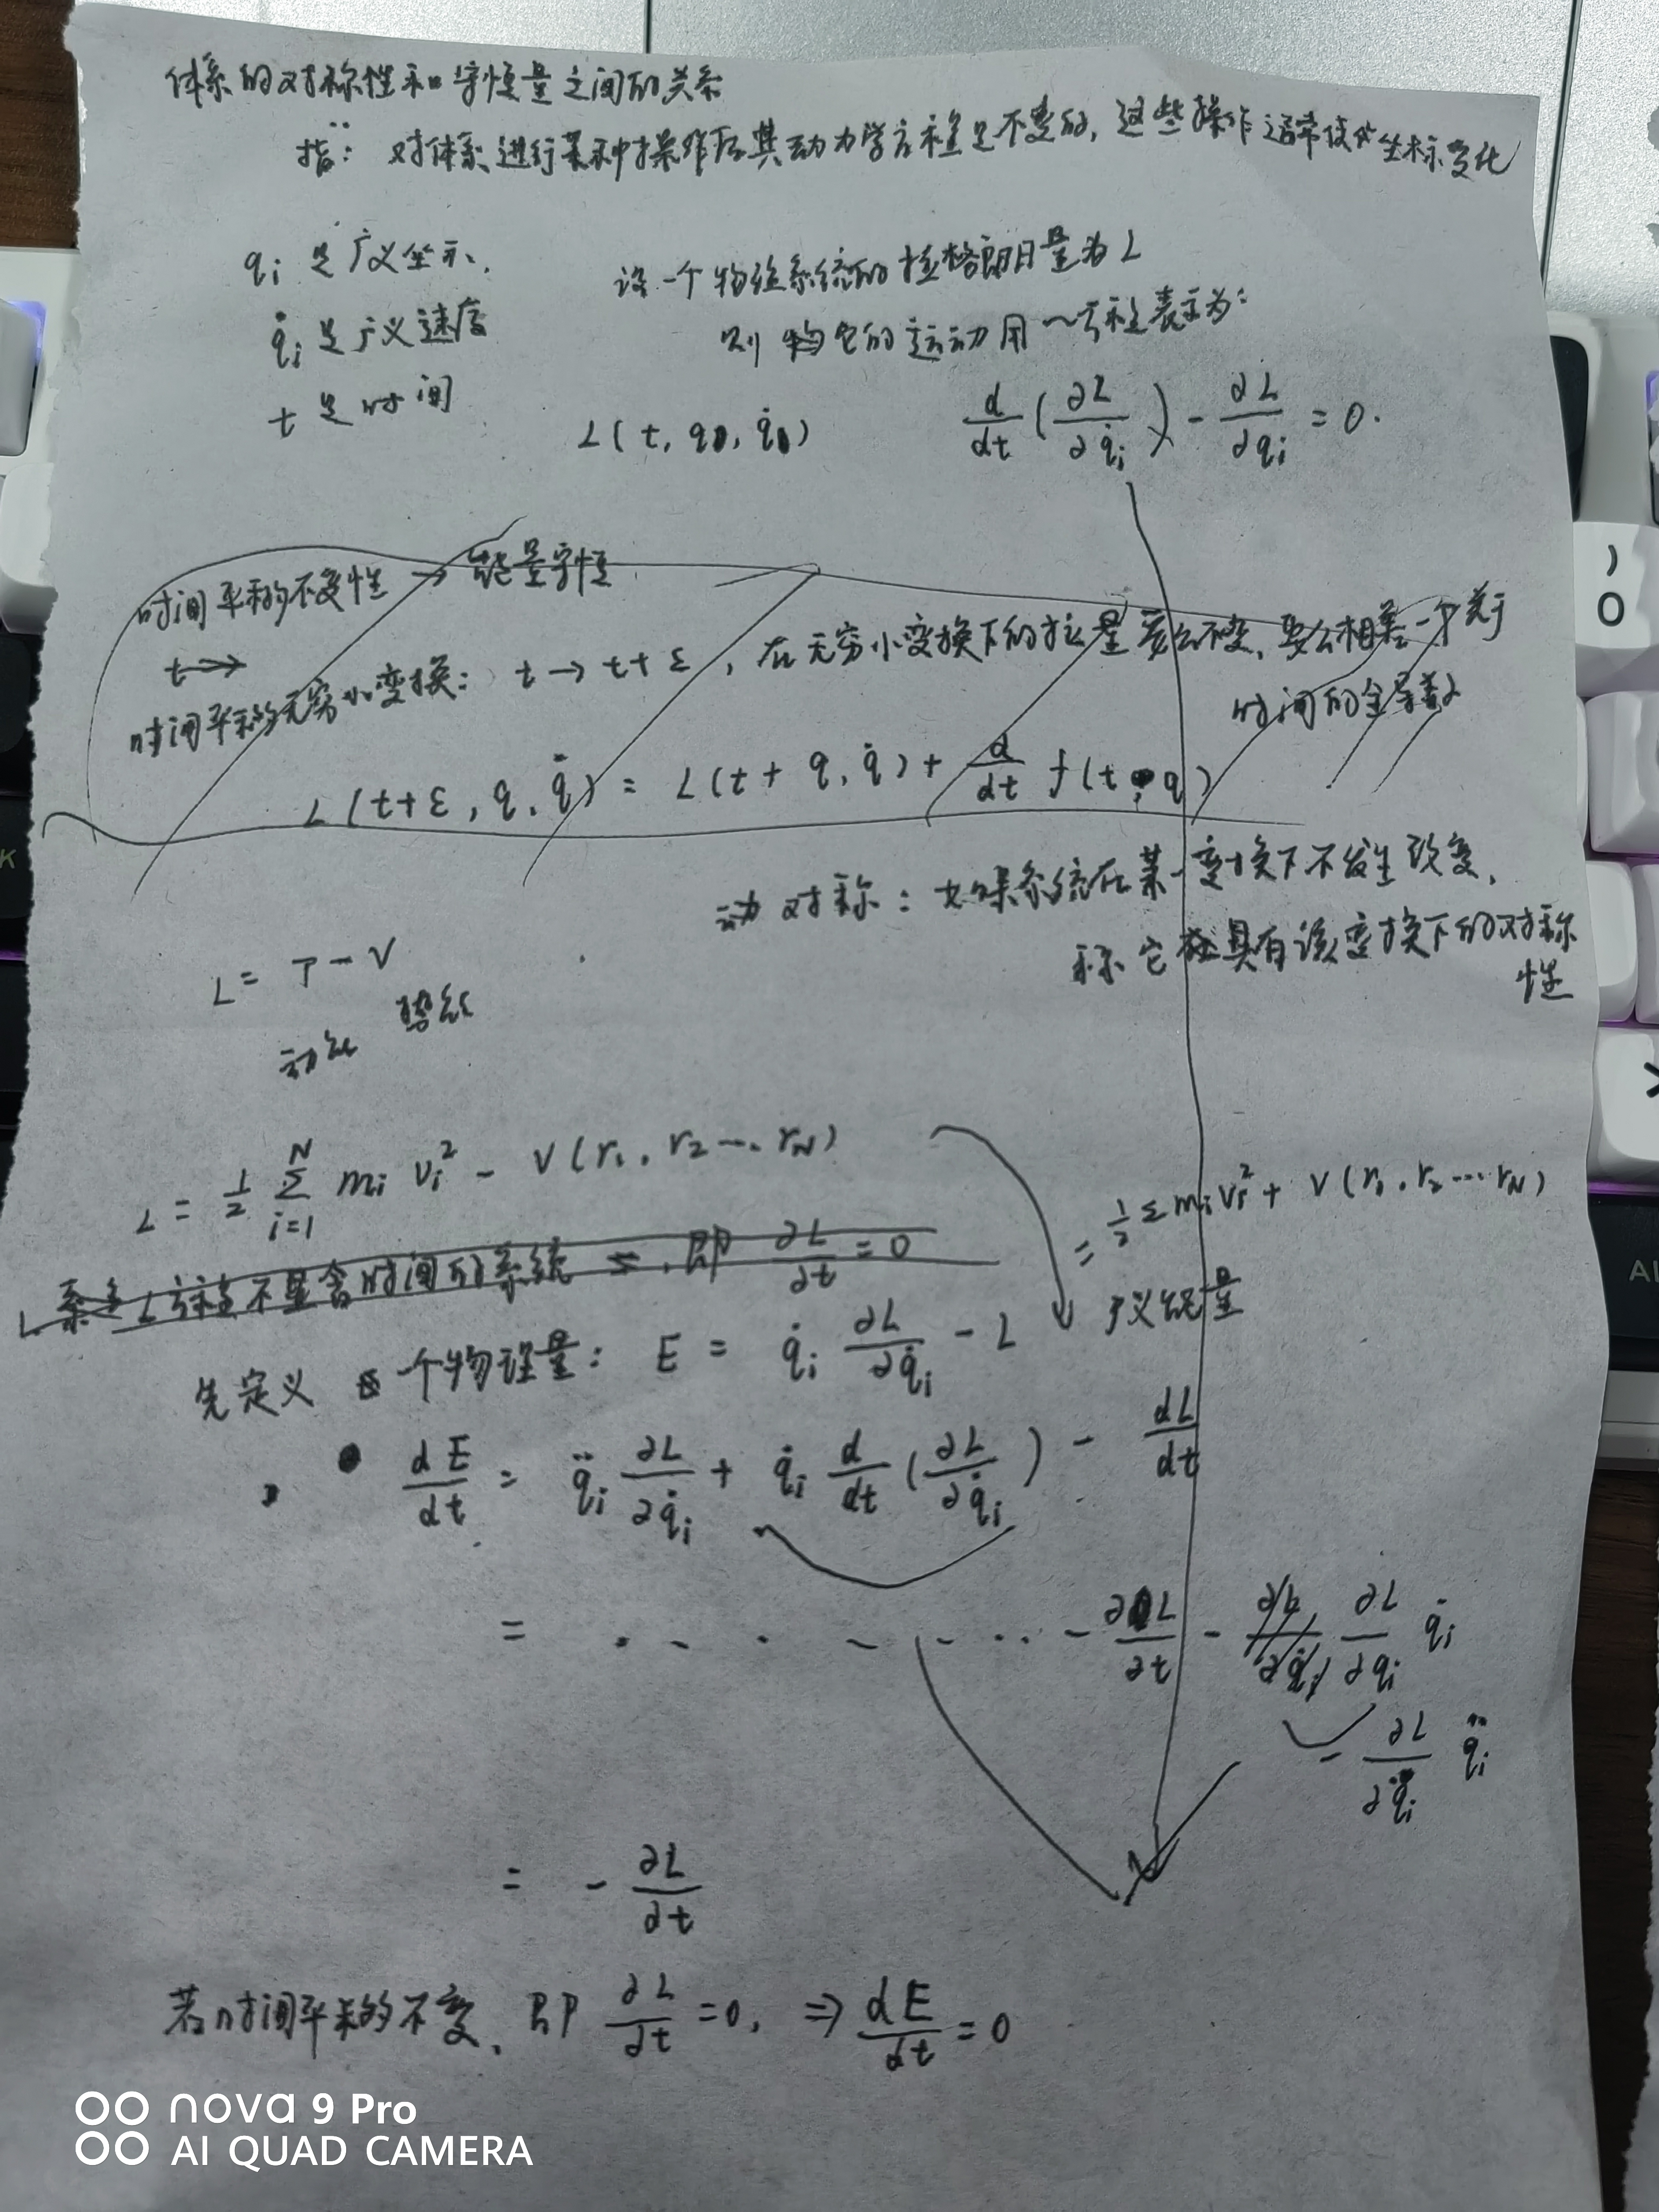 体系的对称性和守恒量之间的关系
指: 对体系进行某种操作后其动力学方程是不变的, 这些操作通常使坐标变化
qᵢ 是广义坐示.
设一个物理系统的拉格朗日量为 L
q̇ᵢ 是广义速度
则 它的运动用一方程表示为:
t 是时间
L(t, q, q̇)
d/dt(∂L/∂q̇ᵢ) - ∂L/∂qᵢ = 0.
时间平移的不变性 → 能量守恒
t →
时间平移的无穷小变换: t → t+ε, 在无穷小变换下的拉量要么不变, 要么相差一个关于
时间的全导数
L(t+ε, q, q̇) = L(t+q, q̇) + d/dt f(t, q)
动对称: 如果系统在某一变换下不发生改变,
称它具有该变换下的对称
性
L = T - V
动能 势能
L = 1/2 Σᵢ₌₁ᴺ mᵢ vᵢ² - V(r₁, r₂ … rN)
= 1/2 Σ mᵢ vᵢ² + V(r₁, r₂ … rN)
L 方程不显含时间的系统, 即 ∂L/∂t = 0
广义能量
先定义 一个物理量: E = q̇ᵢ ∂L/∂q̇ᵢ - L
dE/dt = q̈ᵢ ∂L/∂q̇ᵢ + q̇ᵢ d/dt(∂L/∂q̇ᵢ) - dL/dt
= . - . - - ... - ∂L/∂t - ∂L/∂q̇ᵢ ∂L/∂qᵢ q̇ᵢ
- ∂L/∂q̇ᵢ q̈ᵢ
= - ∂L/∂t
若时间平移的不变, 即 ∂L/∂t = 0, ⇒ dE/dt = 0
nova 9 Pro
AI QUAD CAMERA
)
O
K
Al